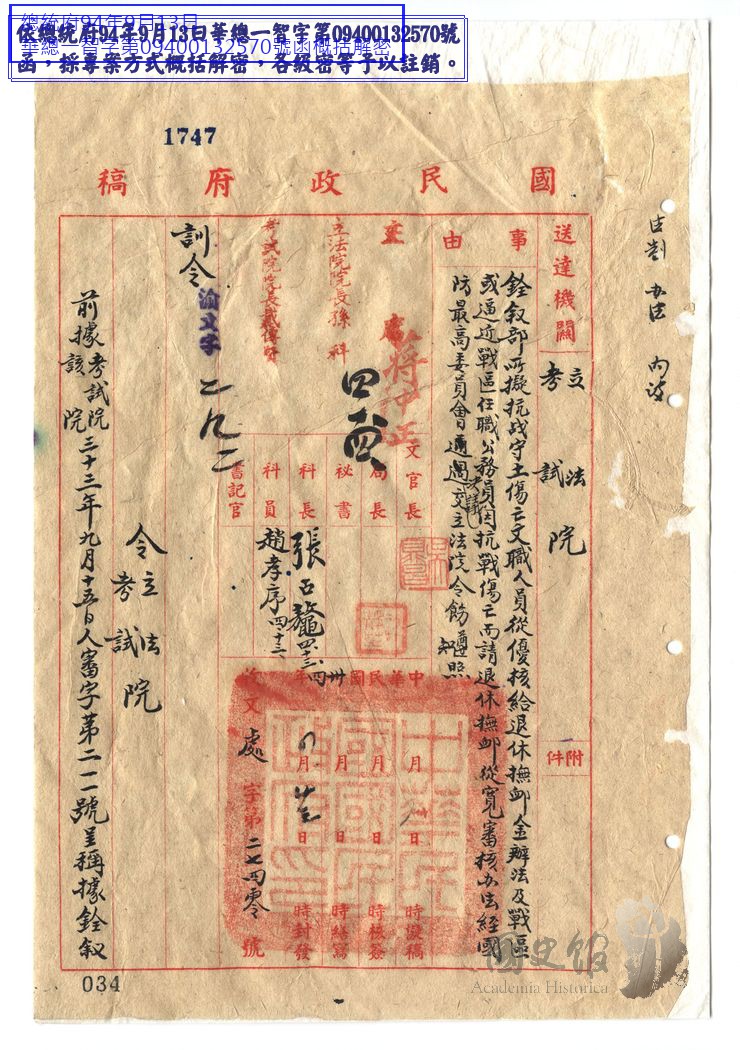 總統府94年9月13日
華總一智字第09400132570號函概括解密
依總統府94年9月13日華總一智字第09400132570號
函，採專案方式概括解密，各級密等予以註銷。
1747
國民政府稿
送達機關
立法
考試
院
附件
事由
銓敘部所擬抗战守土傷亡文職人員從優核給退休撫卹金辦法及戰區
或逼近戰區任職公務員因抗戰傷亡而請退休撫卹從寬審核办法經國
防最高委員會決議通過交立法院令飭知遵照
主席
蔣中正
立法院院長孫科
考試院院長戴傳賢
文官長
局長
秘書
科長
科員
書記官
張
趙孝序
中華民國卅四年
月日時擬稿
月日時核簽
月日時繕寫
月日時封發
收文處字第二七四零號
訓令
渝文字
二九二
令立法
考試
院
前據考試院
該院
三十三年九月十五日人審字第二一一號呈稱據銓敘
034
國史館
Academia Historica